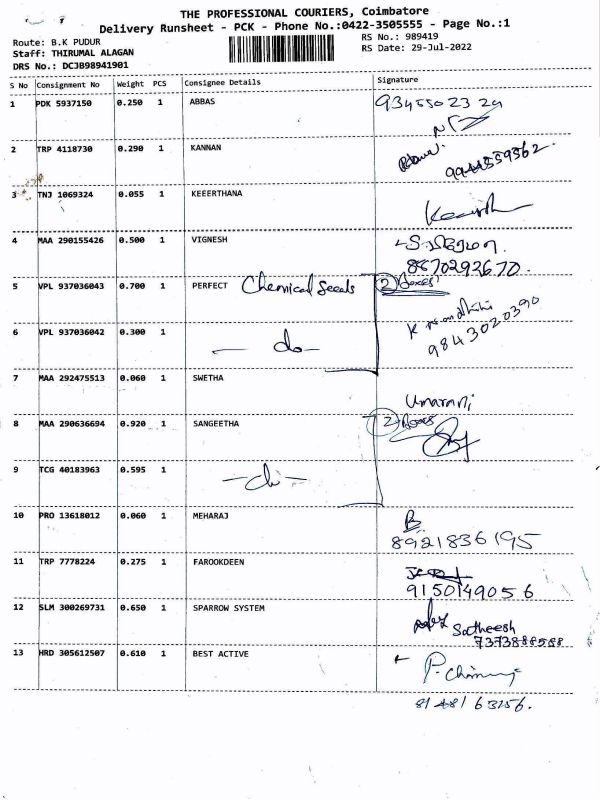 THE PROFESSIONAL COURIERS, Coimbatore
Delivery Runsheet - PCK - Phone No.:0422-3505555 - Page No.:1
Route: B.K PUDUR RS No.: 989419
Staff: THIRUMAL ALAGAN RS Date: 29-Jul-2022
DRS No.: DCJB98941901
S No Consignment No Weight PCS Consignee Details Signature
1 PDK 5937150 0.250 1 ABBAS 9345502324
2 TRP 4118730 0.290 1 KANNAN
9944559362.
3 TNJ 1069324 0.055 1 KEEERTHANA
4 MAA 290155426 0.500 1 VIGNESH
8870293670.
5 VPL 937036043 0.700 1 PERFECT Chemical Seeals 2 Boxes
9843020390
6 VPL 937036042 0.300 1 - do -
7 MAA 292475513 0.060 1 SWETHA
Umarani
8 MAA 290636694 0.920 1 SANGEETHA 2 Boxes
9 TCG 40183963 0.595 1
10 PRO 13618012 0.060 1 MEHARAJ B
8921836195
11 TRP 7778224 0.275 1 FAROOKDEEN
9150149056
12 SLM 300269731 0.650 1 SPARROW SYSTEM
Satheesh
7373888588
13 HRD 305612507 0.610 1 BEST ACTIVE
8148163256.